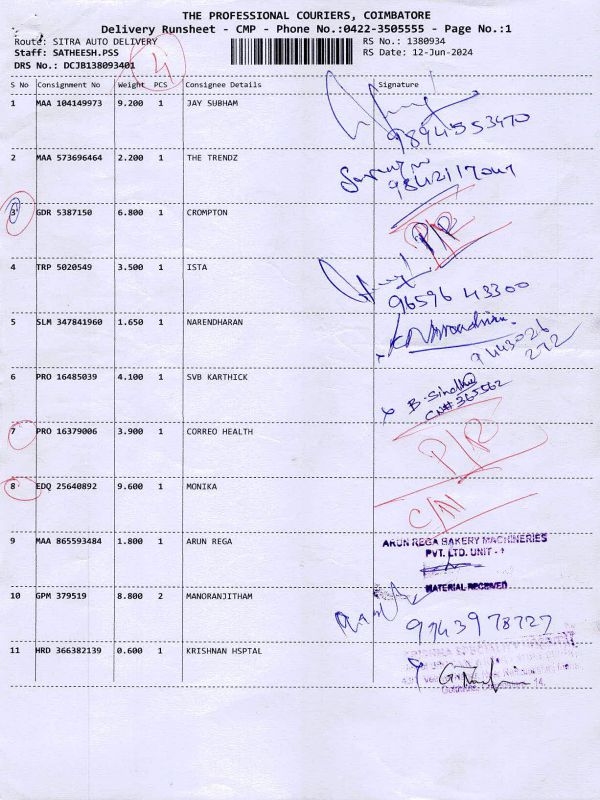 THE PROFESSIONAL COURIERS, COIMBATORE
Delivery Runsheet - CMP - Phone No.:0422-3505555 - Page No.:1
Route: SITRA AUTO DELIVERY RS No.: 1380934
Staff: SATHEESH.PSS RS Date: 12-Jun-2024
DRS No.: DCJB138093401
4
S No Consignment No Weight PCS Consignee Details Signature
1 MAA 104149973 9.200 1 JAY SUBHAM
9894553470
2 MAA 573696464 2.200 1 THE TRENDZ
3 GDR 5387150 6.800 1 CROMPTON P/R
4 TRP 5020549 3.500 1 ISTA
96596 43300
5 SLM 347841960 1.650 1 NARENDHARAN
9443026
272
6 PRO 16485039 4.100 1 SVB KARTHICK
B. Sindhu
365562
7 PRO 16379006 3.900 1 CORREO HEALTH P/R
8 EDQ 25640892 9.600 1 MONIKA
9 MAA 865593484 1.800 1 ARUN REGA ARUN REGA BAKERY MACHINERIES
PVT. LTD. UNIT - 1
MATERIAL RECEIVED
10 GPM 379519 8.800 2 MANORANJITHAM
9143978727
11 HRD 366382139 0.600 1 KRISHNAN HSPTAL